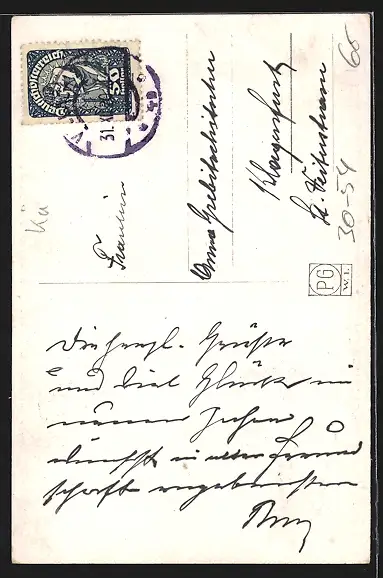 Deutschösterreich
50
31. X
Fräulein
Anna Grebitschitscher
Klagenfurt
St. Veiterstrasse
66
30-54
Kä
PG
W.I.
Die herzl. Grüße
und viel Glück im
neuen Jahre
wünscht in alter Freund
schaft